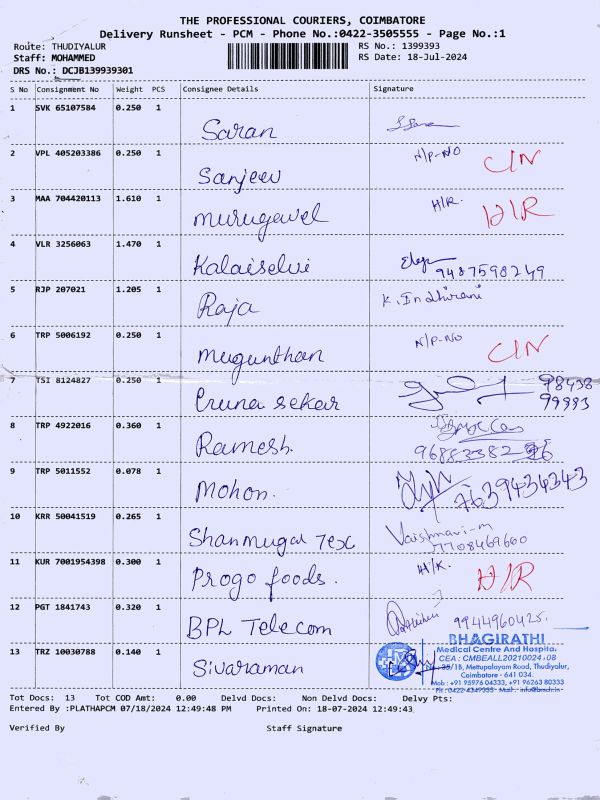 THE PROFESSIONAL COURIERS, COIMBATORE
Delivery Runsheet - PCM - Phone No.:0422-3505555 - Page No.:1
Route: THUDIYALUR RS No.: 1399393
Staff: MOHAMMED RS Date: 18-Jul-2024
DRS No.: DCJB139939301
S No Consignment No Weight PCS Consignee Details Signature
1 SVK 65107584 0.250 1 Saran
2 VPL 405203386 0.250 1 Sanjeev N/P-NO CIN
3 MAA 704420113 1.610 1 Murugavel H/R. H/R
4 VLR 3256063 1.470 1 Kalaiselvi 9487598249
5 RJP 207021 1.205 1 Raja K. Indhirani
6 TRP 5006192 0.250 1 Mugunthan N/P-NO CIN
7 TSI 8124827 0.250 1 sekar 98438
99993
8 TRP 4922016 0.360 1 Ramesh.
9 TRP 5011552 0.078 1 Mohon. 7639434343
10 KRR 50041519 0.265 1 Shanmugal Tex Vaishnavi-m
7708469660
11 KUR 7001954398 0.300 1 Progo foods. H/R. H/R
12 PGT 1841743 0.320 1 BPL Telecom 9944960425.
13 TRZ 10030788 0.140 1 Sivaraman
BHAGIRATHI
Medical Centre And Hospita.
CEA : CMBEALL20210024 :08
35/18, Mettupalayam Road, Thudiyalur,
Coimbatore - 641 034.
Mob : +91 95976 04333, +91 96263 80333
Ph : 0422-4349355 Mail : info@bmch.in
Tot Docs: 13 Tot COD Amt: 0.00 Delvd Docs: Non Delvd Docs: Delvy Pts:
Entered By :PLATHAPCM 07/18/2024 12:49:48 PM Printed On: 18-07-2024 12:49:43
Verified By Staff Signature